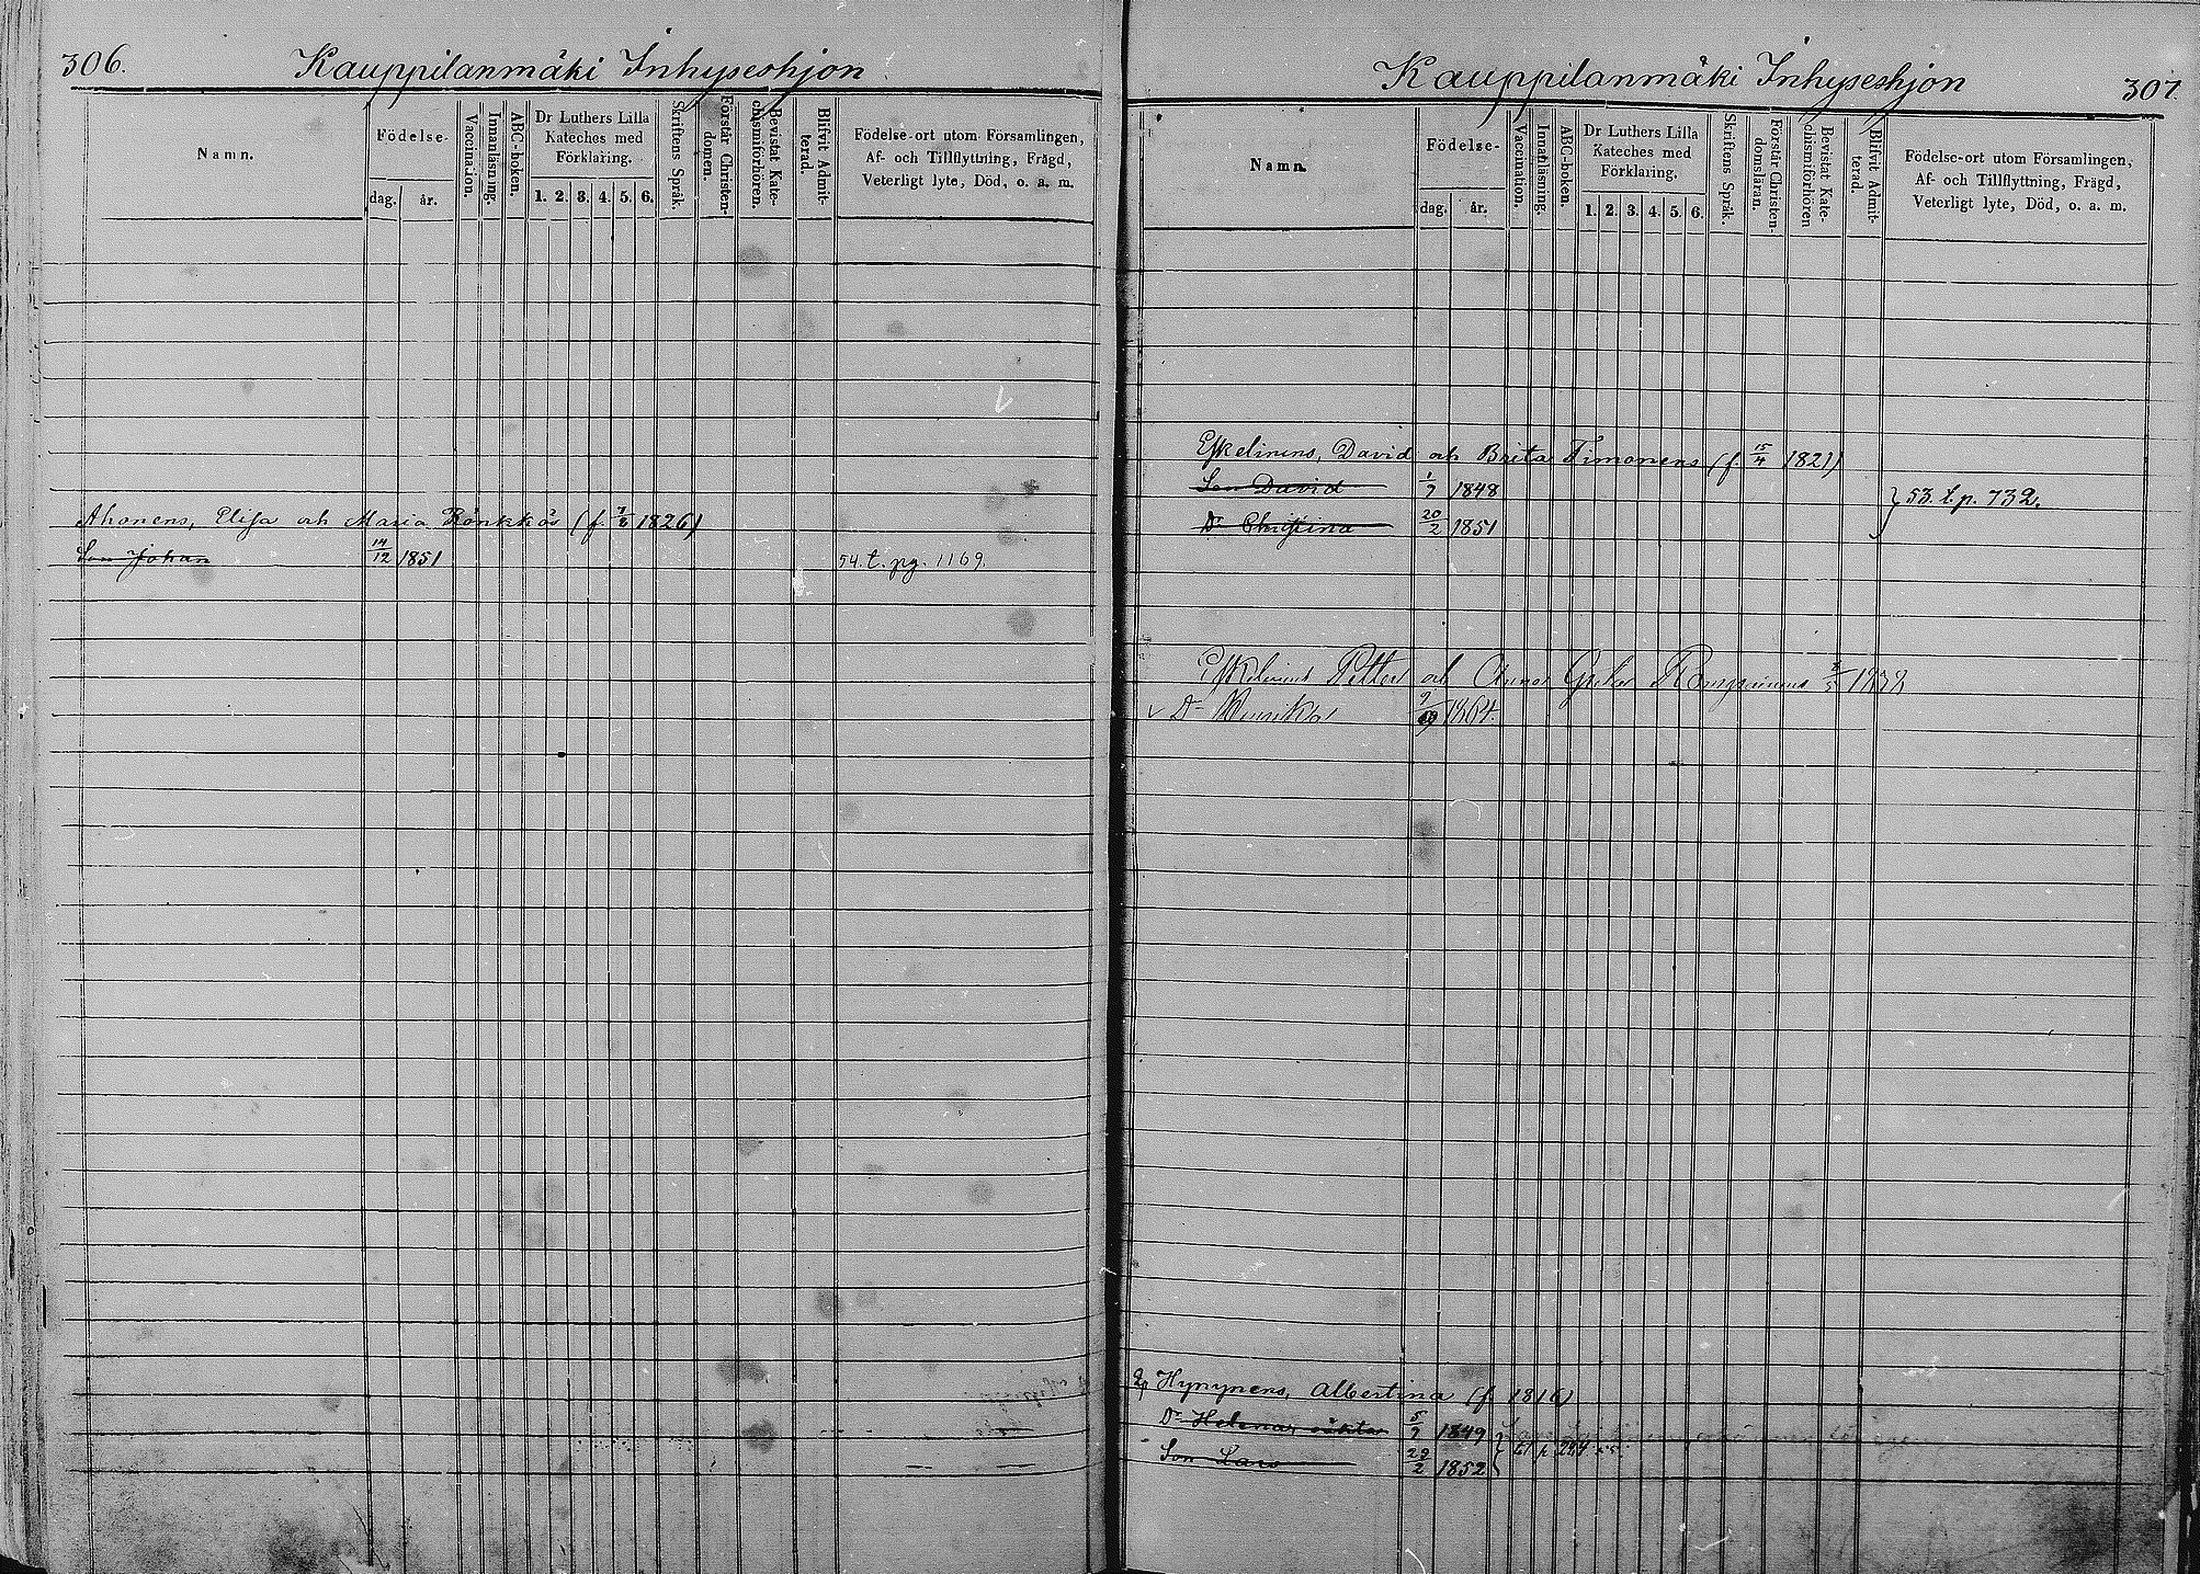 306.
Kauppilanmäki Inhyseshjon
Namn.
Födelse-
dag.
år.
Vaccination.
Innanläsning.
ABC-boken.
Dr Luthers Lilla
Kateches med
Förklaring.
1. 2. 3. 4. 5. 6.
Skriftens Språk.
Förstår Christen-
domen.
Bevistat Kate-
chismiförhören.
Blifvit Admit-
terad.
Födelse-ort utom Församlingen,
Af- och Tillflyttning, Frägd,
Veterligt lyte, Död, o. a. m.
Ahonens, Elisa och Maria Rönkkös (f. 1826)
Son Johan 14/12 1851 54. t. pg. 1169.
Kauppilanmäki Inhyseshjon
307.
Namn.
Födelse-
dag.
år.
Vaccination.
Innanläsning.
ABC-boken.
Dr Luthers Lilla
Kateches med
Förklaring.
1. 2. 3. 4. 5. 6.
Skriftens Språk.
Förstår Christen-
domsläran.
Bevistat Kate-
chismiförhören
Blifvit Admit-
terad.
Födelse-ort utom Församlingen,
Af- och Tillflyttning, Frägd,
Veterligt lyte, Död, o. a. m.
Eskelinens, David och Brita Timonens (f. 15/4 1821)
Son David 1/7 1848
53. t. p. 732.
Dr Christina 20/2 1851
Petter och Anna
Dr 1864.
Hynynens, Albertina (f. 1816)
Dr Helena, 5/7 1849
Son Lars 29/2 1852